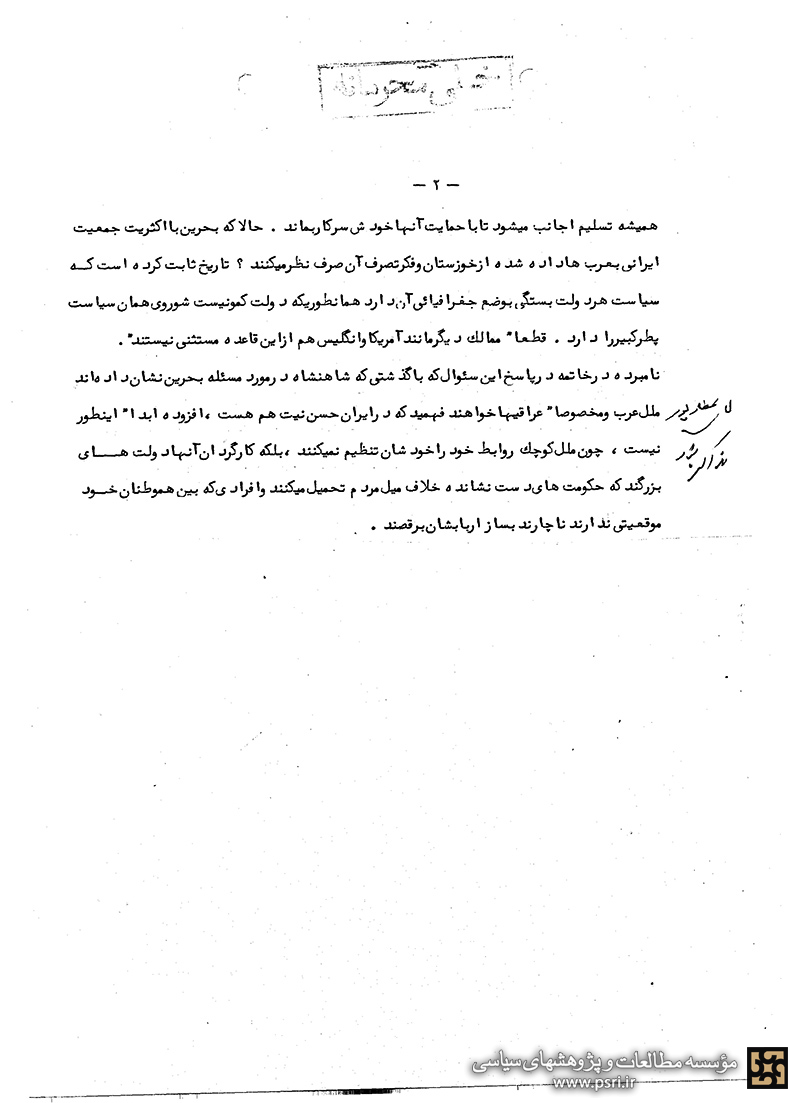 خیلی محرمانه
— ۲ —
همیشه تسلیم اجانب میشود تا با حمایت آنها خودش سرکار بماند . حالا که بحرین با اکثریت جمعیت
ایرانی بعرب ها داده شده از خوزستان و فکر تصرف آن صرف نظر میکنند ؟ تاریخ ثابت کرده است کــه
سیاست هر دولت بستگی بوضع جغرافیائی آن دارد همانطوریکه دولت کمونیست شوروی همان سیاست
پطر کبیر را دارد . قطعا" ممالك دیگر مانند آمریکا و انگلیس هم از این قاعده مستثنی نیستند" .
نامبرده در خاتمه در پاسخ این سئوال که با گذشتی که شاهنشاه در مورد مسئله بحرین نشان داده اند
ملل عرب ومخصوصا" عراقیها خواهند فهمید که در ایران حسن نیت هم هست ، افزوده ابدا" اینطور
نیست ، چون ملل کوچك روابط خود را خودشان تنظیم نمیکنند ، بلکه کارگردان آنها دولت هـــای
بزرگند که حکومت های دست نشانده خلاف میل مردم تحمیل میکنند و افرادی که بین هموطنان خــود
موقعیتی ندارند ناچارند بساز اربابشان برقصند .
مؤسسه مطالعات و پژوهشهای سیاسی
www.psri.ir